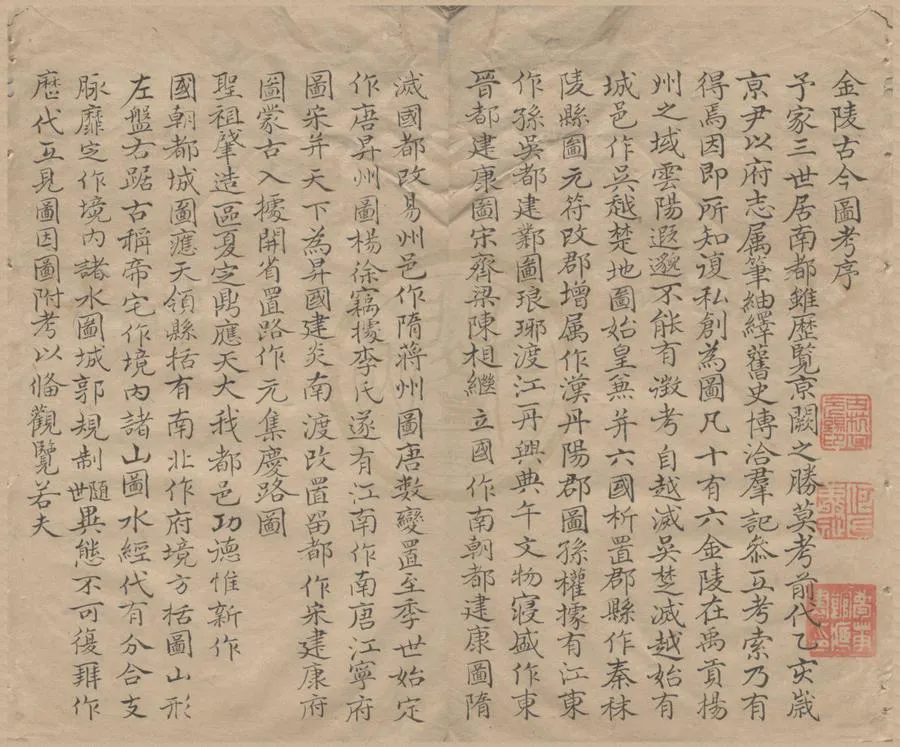 金陵古今圖考序
予家三世居南都雖歷覧京闕之勝莫考前代乙亥歳
京尹以府志属筆紬繹舊史博洽羣記叅互考索乃有
得焉因即所知復私創為圖凡十有六金陵在禹貢揚
州之域雲陽遐邈不能有徵考自越滅吳楚滅越始有
城邑作吳越楚地圖始皇兼并六國析置郡縣作秦秣
陵縣圖元符改郡增属作漢丹陽郡圖孫權據有江東
作孫吳都建鄴圖琅琊渡江一丹興典午文物寖盛作東
晉都建康圖宋齊梁陳相繼立國作南朝都建康圖隋
滅國都改易州邑作隋蔣州圖唐數變置至季世始定
作唐昇州圖楊徐竊據李氏遂有江南作南唐江寧府
圖宋并天下為昇國建炎南渡改置留都作宋建康府
圖蒙古入據開省置路作元集慶路圖
聖祖肇造區夏定鼎應天大我都邑功德惟新作
國朝都城圖應天領縣括有南北作府境方括圖山形
左盤右踞古稱帝宅作境內諸山圖水經代有分合支
脉靡定作境內諸水圖城郭規制世隨異態不可復辨作
歷代互見圖因圖附考以俻觀覽若夫